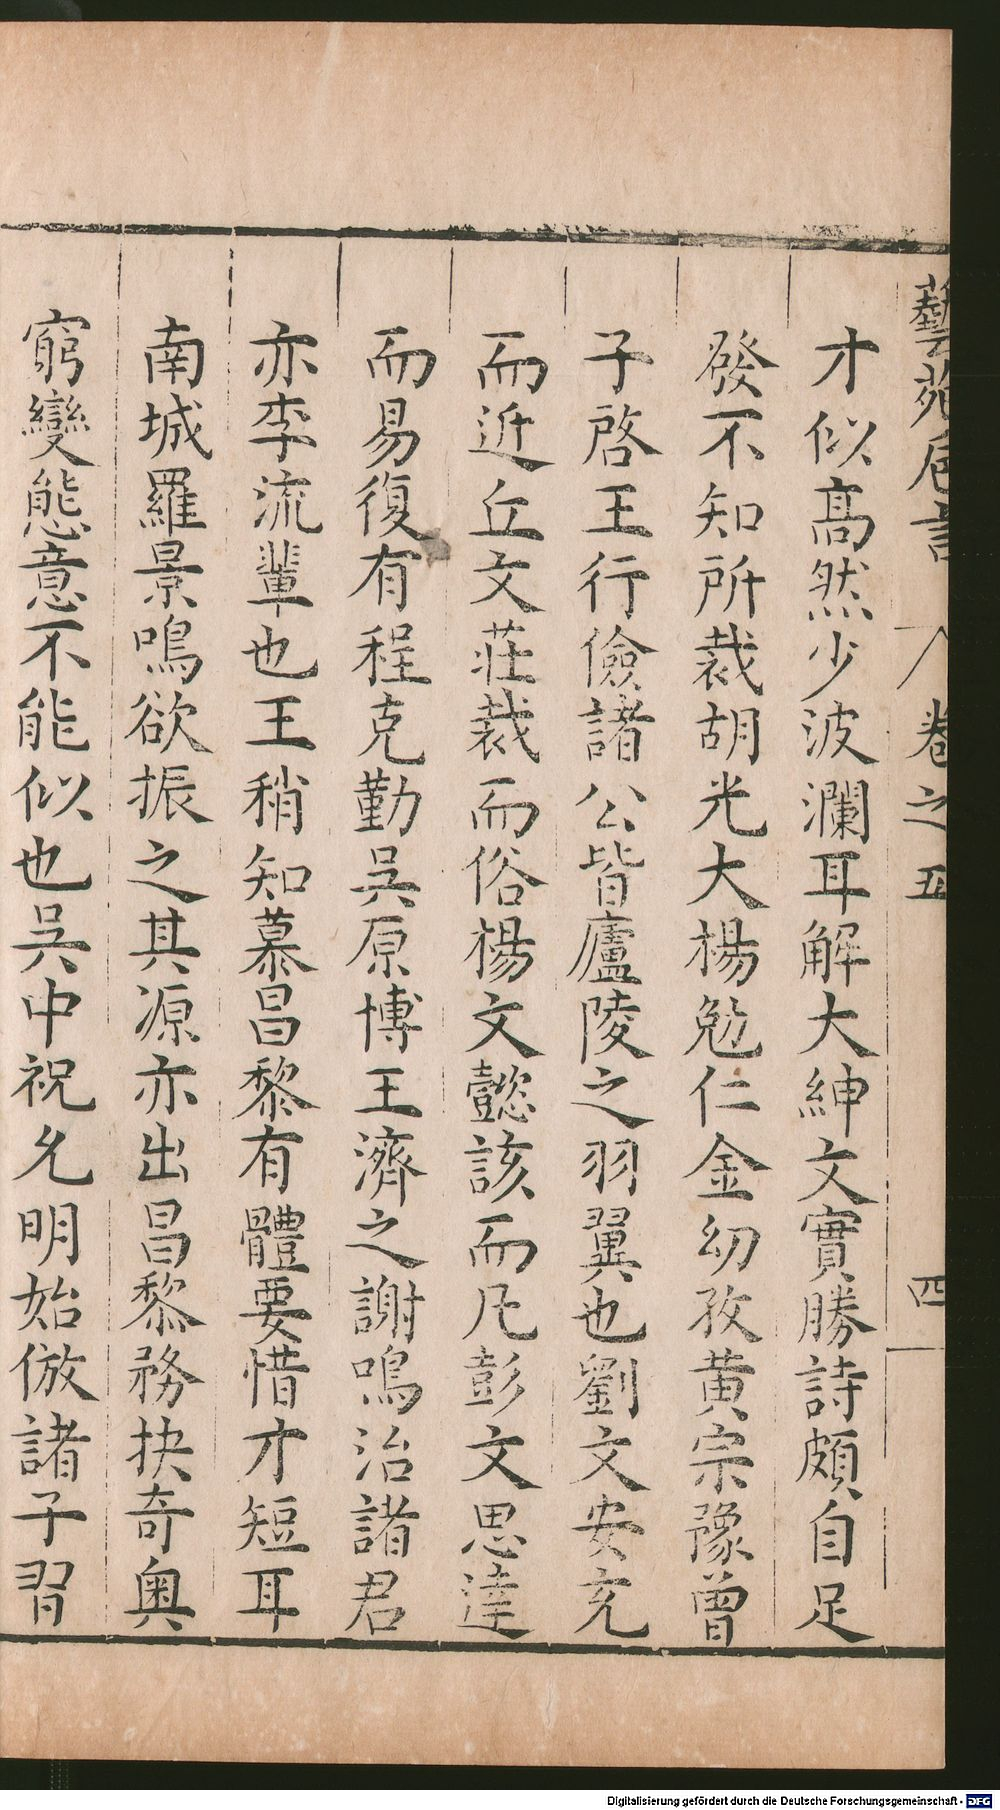 藝苑卮言 卷之五 四
才似高然少波瀾耳解大紳文實勝詩頗自足
發不知所裁胡光大楊勉仁金幼孜黃宗豫曾
子啓王行儉諸公皆廬陵之羽翼也劉文安充
而近丘文莊裁而俗楊文懿該而凡彭文思達
而易復有程克勤吳原博王濟之謝鳴治諸君
亦李流輩也王稍知慕昌黎有體要惜才短耳
南城羅景鳴欲振之其源亦出昌黎務抉奇奥
窮變態意不能似也吳中祝允明始倣諸子習
Digitalisierung gefördert durch die Deutsche Forschungsgemeinschaft - DFG